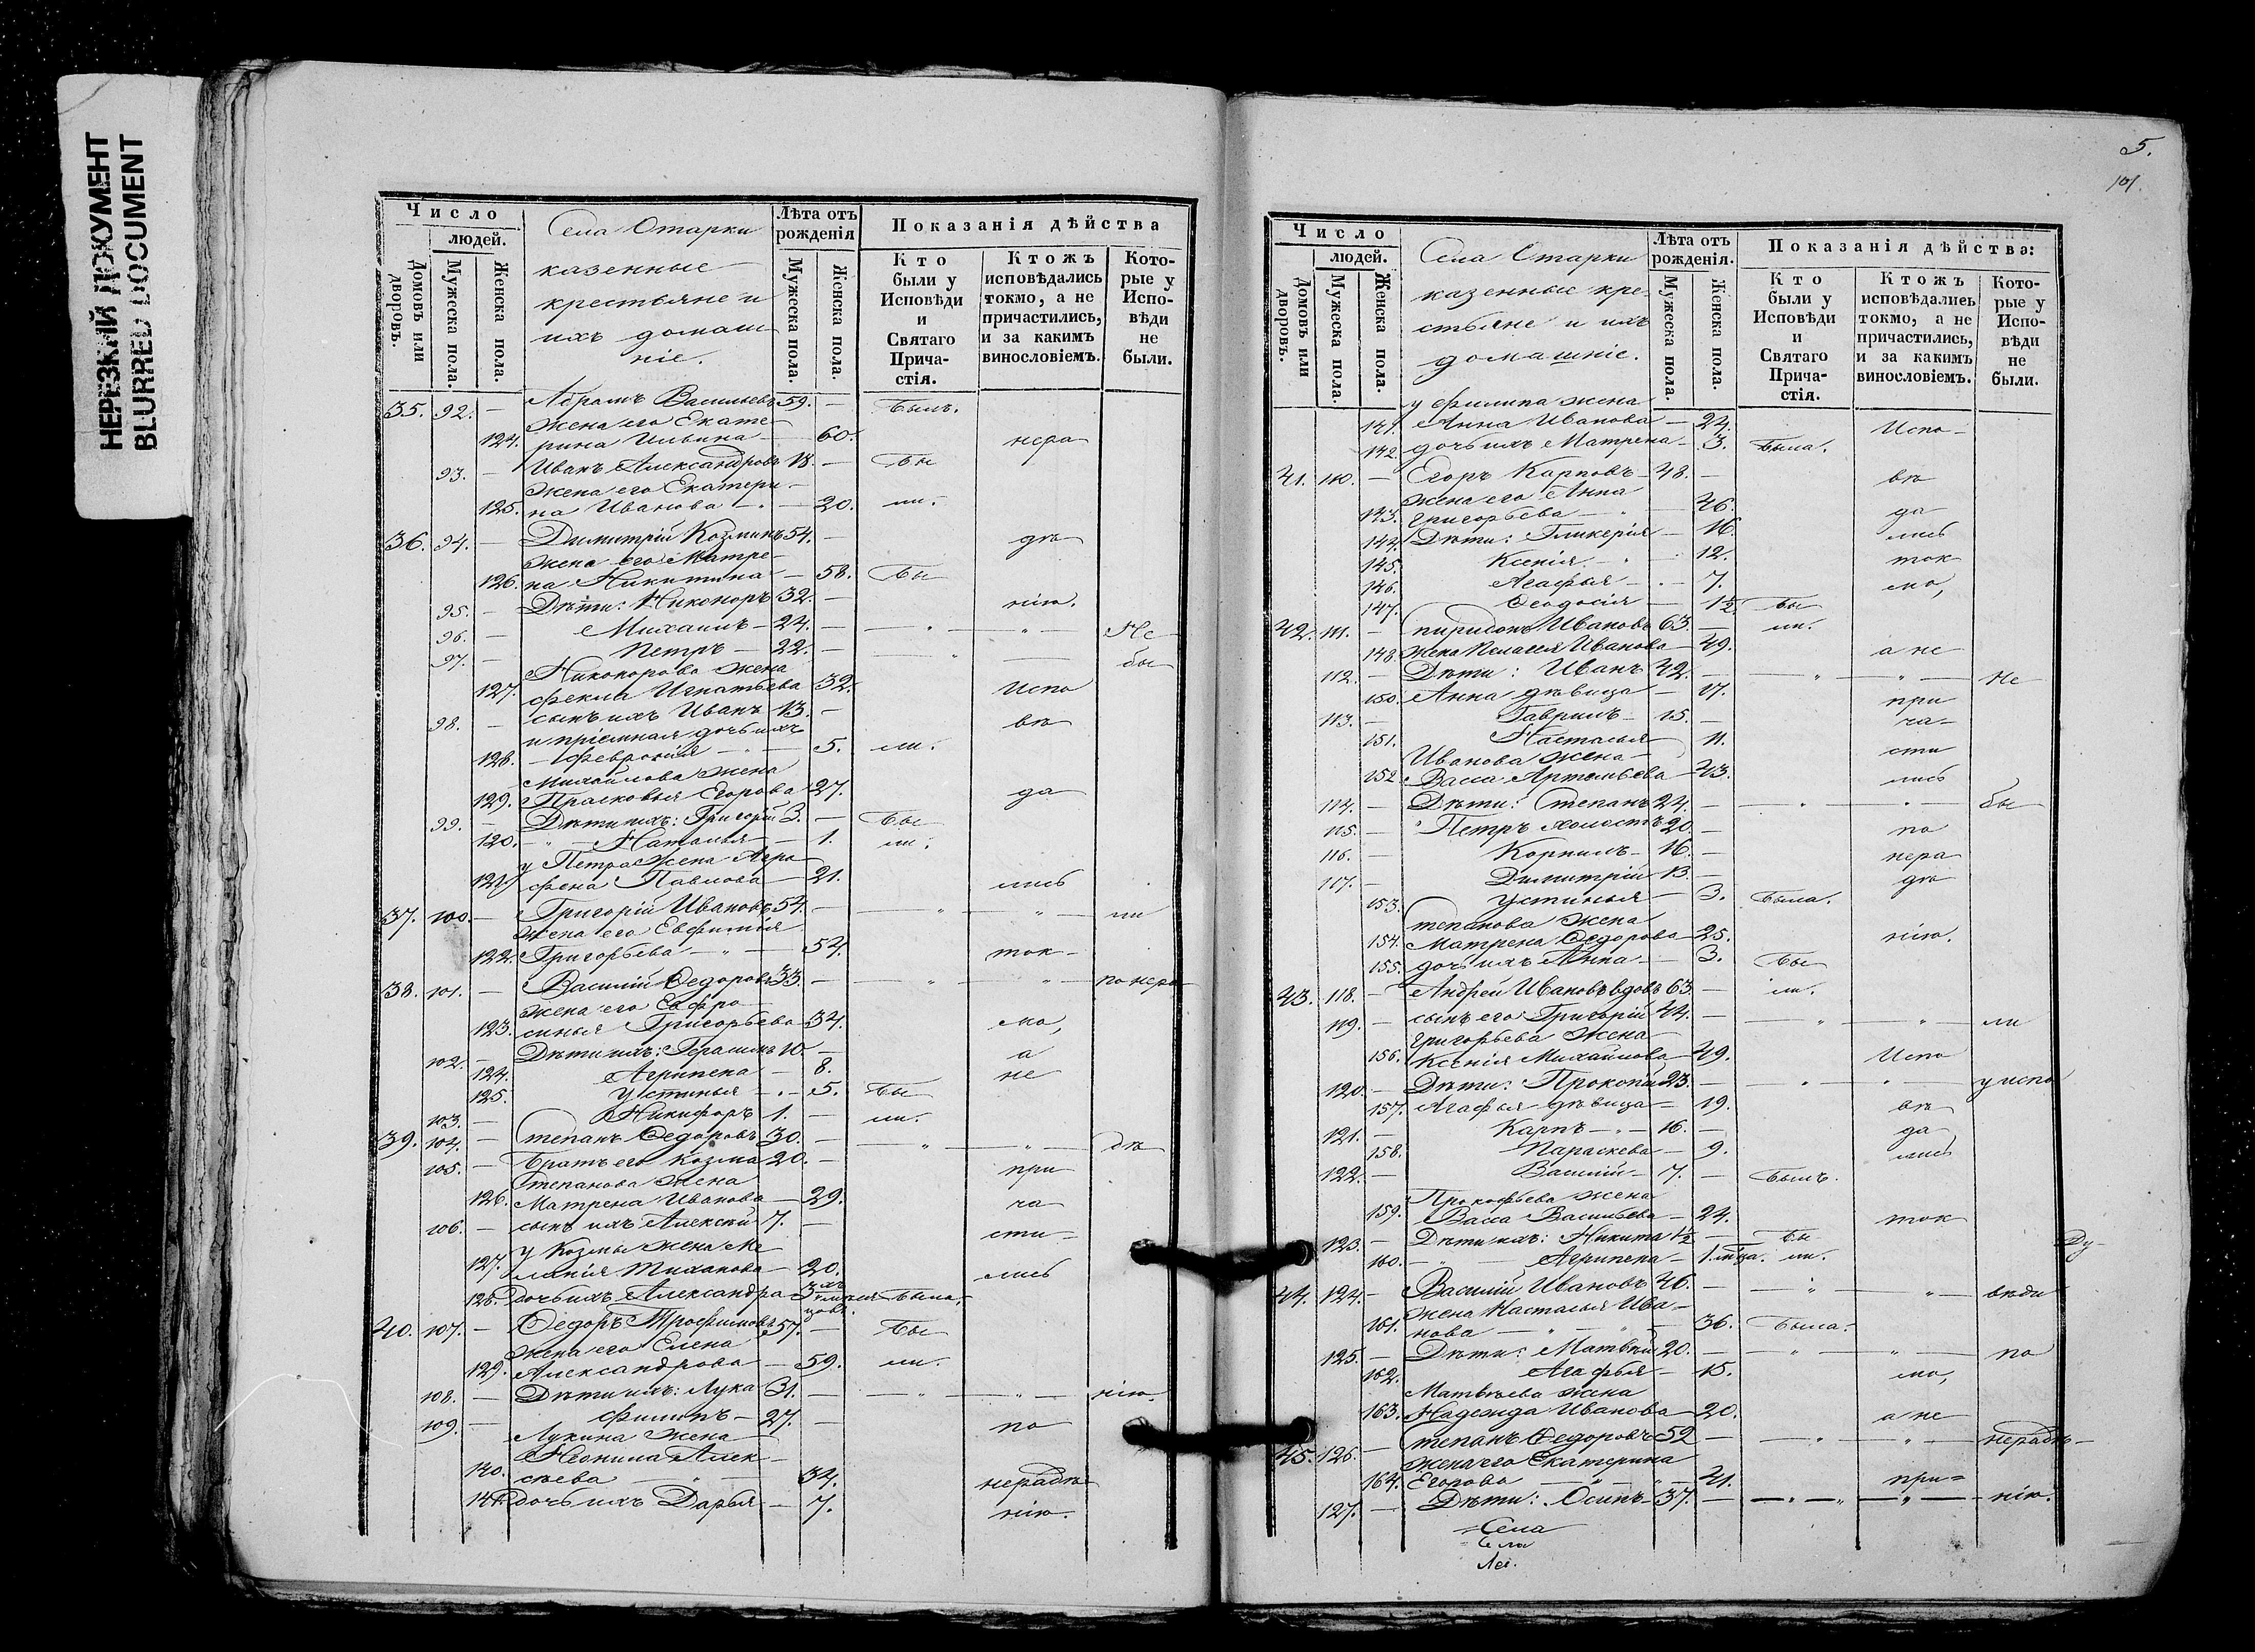 НЕРЕЗКИЙ ДОКУМЕНТ
BLURRED DOCUMENT
Число
людей.
Домовъ или дворовъ.
Мужеска пола.
Женска пола.
Села Отарки
казенные
крестьяне и
ихъ домаш
ніе.
Лѣта отъ рожденія
Мужеска пола.
Женска пола.
Показанія дѣйства
Кто были у Исповѣди и Святаго Прича-стія.
Ктожъ исповѣдались токмо, а не причастились, и за какимъ винословіемъ.
Кото-рые у Испо-вѣди не были.
35. 92. — Абрамъ Васильевъ 59. — Былъ.
жена его Екате
124. рина Ильина — 60. нера
93. — Иванъ Александровъ 18. — Бы
жена его Екатери
125. на Иванова — 20. ли.
36. 94. — Димитрій Козминъ 54. — дѣ
жена его Матре
126. на Никитина — 58. Бы
95. — Дѣти: Никоноръ 32. — нію.
96. — Михаилъ — 24. — " — " — Не
97. — Петръ — 22. — " — бы
Никонорова жена
127. Фекла Игнатьева 32. Испо
98. — сынъ ихъ Иванъ 13. — вѣ
и пріемная дочь ихъ
128. — Февронія — 5. ли.
Михайлова жена
129. Прасковья Егорова 27. да
99. — Дѣти ихъ: Григорій 3. — Бы
120. — " — Наталья — 1. ли.
у Петра жена Агра
121. фена Павлова — 21. лись
37. 100. — Григорій Ивановъ 54. — " — " — ли
жена его Евфимія
122. Григорьева — " — 54. ток-
38. 101. — Василій Ѳедоровъ 33. — " — " — по нера
жена его Евфро
123. синья Григорьева — 34. мо,
102. — Дѣти ихъ: Герасимъ 10. — а
124. Агрипена — 8. не
125. Устинья — " — 5. Бы
103. — Никифоръ 1. — ли.
39. 104. — Степанъ Ѳедоровъ 30. — " — " — дѣ
105. — Братъ его Козма 20. — при
Степанова жена
126. Матрена Иванова — 29. ча
106. — сынъ ихъ Алексѣй 7. — сти-
у Козмы жена Ме
127. ланія Тиханова — 20. лись
128. Дочь ихъ Александра — 3хъ мѣся цовъ. Была.
40. 107. — Ѳедоръ Трофимовъ 57. — Бы
жена его Елена
129. Александрова — 59. ли.
108. — Дѣти ихъ: Лука 31. — " — " — нію.
109. — Филипъ — 27. — по
Лукина жена
Неонила Алек
140. сѣева — " — 34. нерадѣ
141. дочь ихъ Дарья — 7. нію.
5.
101.
Число
людей.
Домовъ или дворовъ.
Мужеска пола.
Женска пола.
Села Отарки
казенные кре
стьяне и ихъ
домашніе.
Лѣта отъ рожденія.
Мужеска пола.
Женска пола.
Показанія дѣйства:
Кто были у Исповѣди и Святаго Прича-стія.
Ктожъ исповѣдались токмо, а не причастились, и за какимъ винословіемъ.
Кото-рые у Испо-вѣди не были.
у Филипа жена
141. Анна Иванова — 24. Испо-
142. дочь ихъ Матрена — 3. Была.
41. 110. — Егоръ Карповъ — 48. — вѣ
жена его Анна
143. Григорьева — " — 46. да
144. Дѣти: Гликерія — 16. лись
145. Ксенія — " — 12. ток
146. Агафья — " — 7. мо,
147. Ѳеодосія — 1½. Бы
42. 111. — Спиридонъ Ивановъ 63. — ли.
148. жена Пелагея Иванова — 49. а не
112. — Дѣти: Иванъ 42. — " — " — Не
150. Анна дѣвица — 17. при
113. — Гаврилъ — 15. — ча-
151. Настасья — 11. сти
Иванова жена
152. Васса Артемьева — 43. лись
114. — Дѣти: Степанъ 24. — " — " — бы
115. — " Петръ холостъ 20. — по
116. — Корнилъ — 16. — нера
117. — Димитрій 13. — дѣ
153. Устинья — 3. Была.
Степанова жена
154. Матрена Ѳедорова — 25. нію.
155. дочь ихъ Анна — 3. Бы
43. 118. — Андрей Ивановъ вдовъ 63. — ли.
119. — сынъ его Григорій 44. — " — " — ли
Григорьева жена
156. Ксенія Михайлова — 49. Испо
120. — Дѣти: Прокопій 23. — " — " — у испо
157. Агафья дѣвица — 19. вѣ
121. — Карпъ — " — 16. — да
158. Параскева — 9. лись
122. — Василій — 7. — Былъ.
Прокофьева жена
159. Васса Васильева — 24. ток
123. — Дѣти ихъ: Никита 1½ — Бы
160. — " — Агрипена — 1. мѣца. ли.
Ду-
44. 124. — Василій Ивановъ 46. — " — " — вѣди
жена Настасья Ива
161. нова — " — " — 36. Была.
125. — Дѣти: Матвѣй 20. — " — " — по
162. Агафья — 15. мо,
Матвѣева жена
163. Надежда Иванова — 20. а не
45. 126. — Степанъ Ѳедоровъ 52 — " — " — нерадѣ-
жена его Екатерина
164. Егорова — " — " — 41. при-
127. — Дѣти: Осипъ — 37. — " — " — нію.
Села